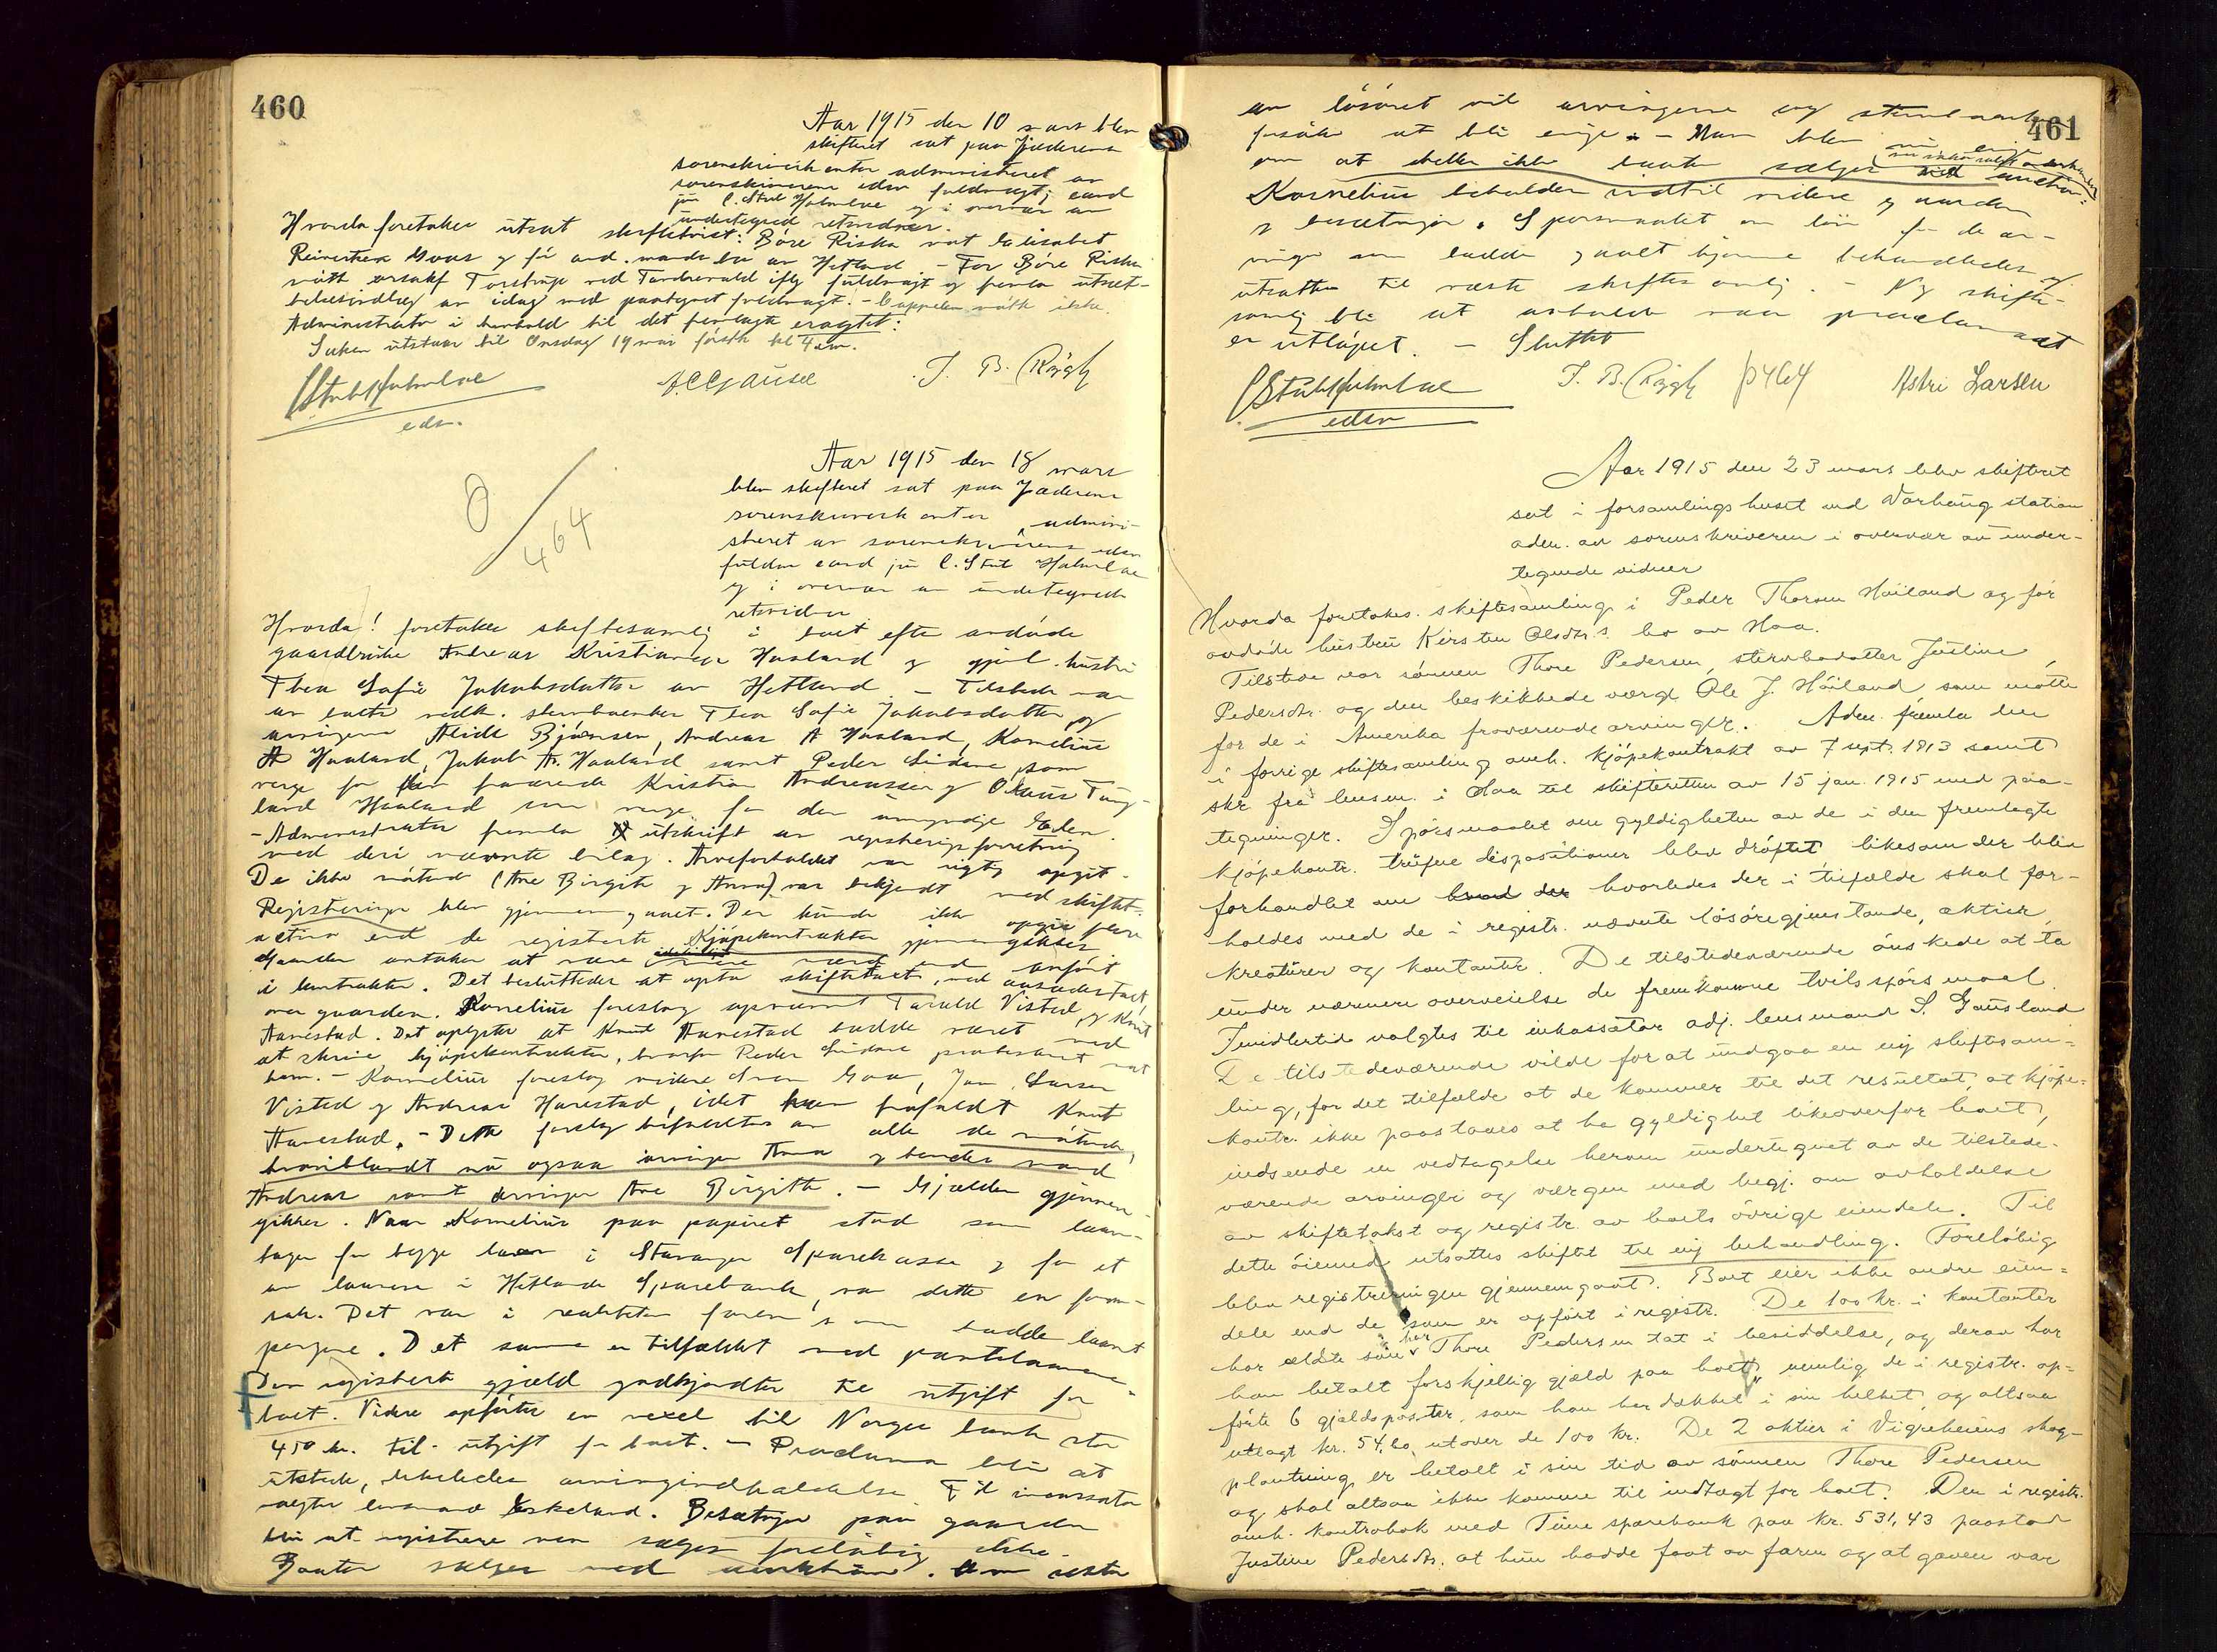 460
Aar 1915 den 10 mars blev
skifteret sat paa Jæderens
sorenskriverkontor administreret av
sorenskriverens edsv. fuldmægtig cand
jur C. Stub Holmboe og i overvær av
undertegned retsvidner.
Hvorda foretages utsat skiftetvist: Børe Riska mot Elisabet
Reinertsen Goas og før avd. mands bo av Hetland – For Børe Riska
møtt orsakf. Torstrup ved Tandrevald iflg fuldmagt og fremla utsæt-
telsesindlæg av idag med paategnet fuldmagt. – Cappelen møtt ikke.
Administrator i henhold til det fremlagte eragtet:
Saken utstaar til Onsdag 19 mai førstk kl 4 em.
C Stub Holmboe
edsv.
J. B. Rygh
Aar 1915 den 18 mars
blev skifteret sat paa Jæderens
sorenskriverkontor, admini-
streret av sorenskriverens edsv
fuldm cand jur C. Stub Holmboe
og i overvær av undertegnede
retsvidner
0/464
Hvorda! foretokes skiftesamling i boet efter avdøde
gaardbruker Andreas Kristiansen Haaland og gjenl. hustru
Thea Sofie Jakobsdatter av Hetland. – Tilstede var
av boets vedk. stervboenken Thea Sofie Jakobsdatter og
arvingerne Alide Bjørnsen, Andreas A Haaland, Kornelius
A Haaland, Jakob A. Haaland samt Peder Lidane som
verge for den fraværende Kristian Andreassen og Olaus Tung-
land Haaland som verge for den umyndige Elen.
– Administrator fremla utskrift av registreringsforretning
med deri nævnte bilag. Arveforholdet var rigtig opgit.
De ikke møtende (Ane Birgite og Anna) var bekjendt med skiftet.
Registeringen blev gjennemgaaet. Der kunde ikke opgis flere
activa end de registrerte. Kjøpekontrakten gjennemgikkes
Gaarden antokes at være mere værd end anført
i kontrakten. Det besluttedes at opta skiftetakst, med aasædestakst,
over gaarden. Kornelius foreslog opnævnt Tarald Visted og Knut
Harestad. Det oplystes at Knut Harestad hadde været med
at skrive kjøpekontrakten, hvorfor Peder Lidane protesterte mot
ham. – Kornelius foreslog videre Sven Goa, Jon Larsen
Visted og Andreas Harestad, idet han frafaldt Knut
Harestad. – Dette forslag bifaldtes av alle de møtende,
hvoriblandt nu ogsaa arvingen Anna og hendes mand
Andreas samt arvingen Ane Birgith. – Gjælden gjennem-
gikkes. Naar Kornelius paa papiret stod som laan-
tager for begge laan i Stavanger Sparekasse og for et
av laanene i Hetlands Sparebank, var dette en form-
sak. Det var i realiteten faren som hadde laant
pengene. Det samme er tilfældet med pantelaanene.
Den registrerte gjæld godkjendtes til utgift for
boet. Videre opførtes en vexel til Norges bank stor
450 kr. til utgift for boet. – Proclama blir at
utstede, likeledes arvingindkaldelse. Til incassator
valgtes lensmand Eskeland. Besætningen paa gaarden
blir at registrere men sælges foreløbig ikke.
Baaten sælges ved auktion. Om resten
461
av løsøret vil arvingerne og stervboenken
forsøke at bli enige. – Man blev nu enig
om at heller ikke baaten sælges ved auction.
Kornelius beholder indtil videre gaarden
og besætningen. Spørsmaalet om løn for de ar-
vinger som hadde gaaet hjemme behandledes og
utsattes til næste skiftesamling. – Ny skifte-
samling blir at avholde naar proclamaet
er utløpet. – Sluttet
C Stub Holmboe
edsv
J. B. Rygh p 464
Astri Larsen
Aar 1915 den 23 mars blev skifteret
sat i forsamlingshuset ved Varhaug station
adm. av sorenskriveren i overvær av under-
tegnede vidner
Hvorda foretokes skiftesamling i Peder Thorsen Høiland og før
avdøde hustru Kirsten Olsdtr.s bo av Haa.
Tilstede var sønnen Thore Pedersen, stervbodatter Justine
Pedersdtr. og den beskikkede værge Ole J. Høiland som møtte
for de i Amerika fraværende arvinger. Adm. fremla den
i forrige skiftesamling omh. kjøpekontrakt av 7 sept. 1913 samt
skr fra lensm. i Haa til skifteretten av 15 jan. 1915 med paa-
tegninger. Spørsmaalet om gyldigheten av de i den fremlagte
kjøpekontr. trufne dispositioner blev drøftet likesom der blev
forhandlet om hvad der hvorledes der i tilfælde skal for-
holdes med de i registr. nævnte løsøregjenstande, aktier,
kreaturer og kontanter. De tilstedeværende ønskede at ta
under nærmere overveielse de fremkomne tvilsspørsmaal.
Imidlertid valgtes til inkassator adj. lensmand S. Gausland
De tilstedeværende vilde for at undgaa en ny skiftesam-
ling, for det tilfælde at de kommer til det resultat, at kjøpe-
kontr. ikke paastaaes at ha gyldighet likeoverfor boet,
indsende en vedtagelse herom undertegnet av de tilstede-
værende arvinger og værgen med begj. om avholdelse
av skiftetakst og registr. av boets øvrige eiendele. Til
dette øiemed utsattes skiftet til ny behandling. Foreløbig
blev registreringen gjennemgaat. Boet eier ikke andre eien-
dele end de som er opført i registr. De 100 kr. i kontanter
har ældste søn Thore Pedersen tat i besiddelse, og derav har
han betalt forskjellig gjæld paa boet, nemlig de i registr. op-
førte 6 gjældsposter, som han har dækket i sin helhet og altsaa
utlagt kr. 54,60 utover de 100 kr. De 2 aktier i Vigreheiens skog-
plantning er betalt i sin tid av sønnen Thore Pedersen
og skal altsaa ikke komme til indtægt for boet. Den i registr.
omh. kontrabok med Time sparebank paa kr. 531,43 paastod
Justine Pedersdtr. at hun hadde faat av faren og at gaven var